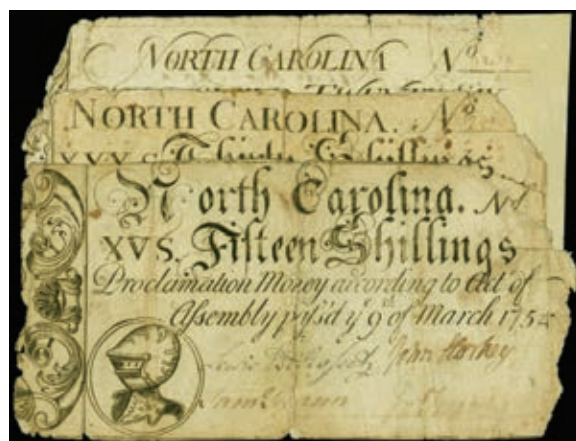 NORTH CAROLINA No
NORTH CAROLINA. No
XXX S. Thirty Shillings
North Carolina. No
XVS. Fifteen Shillings
Proclamation Money according to Act of
Assembly pass'd ye 9th of March 1754
John Starkey